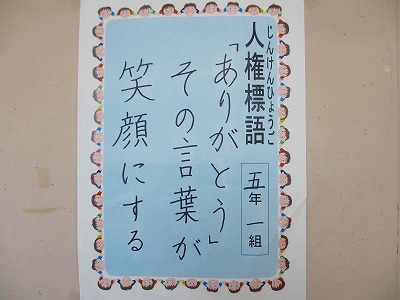 じんけんひょうご
人権標語
五年一組
「ありがとう」
その言葉が
笑顔にする